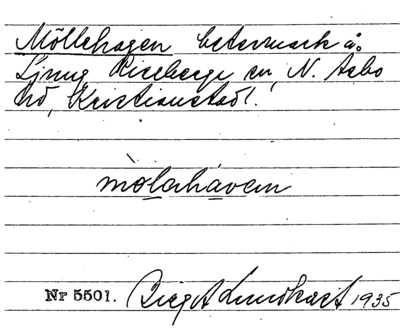 Möllehagen betesmark å
Ljung Riseberga sn, N. Åsbo
hd, Kristianstad l.
mòlahávαn
Nr 5501. Birgit Lundkast 1935